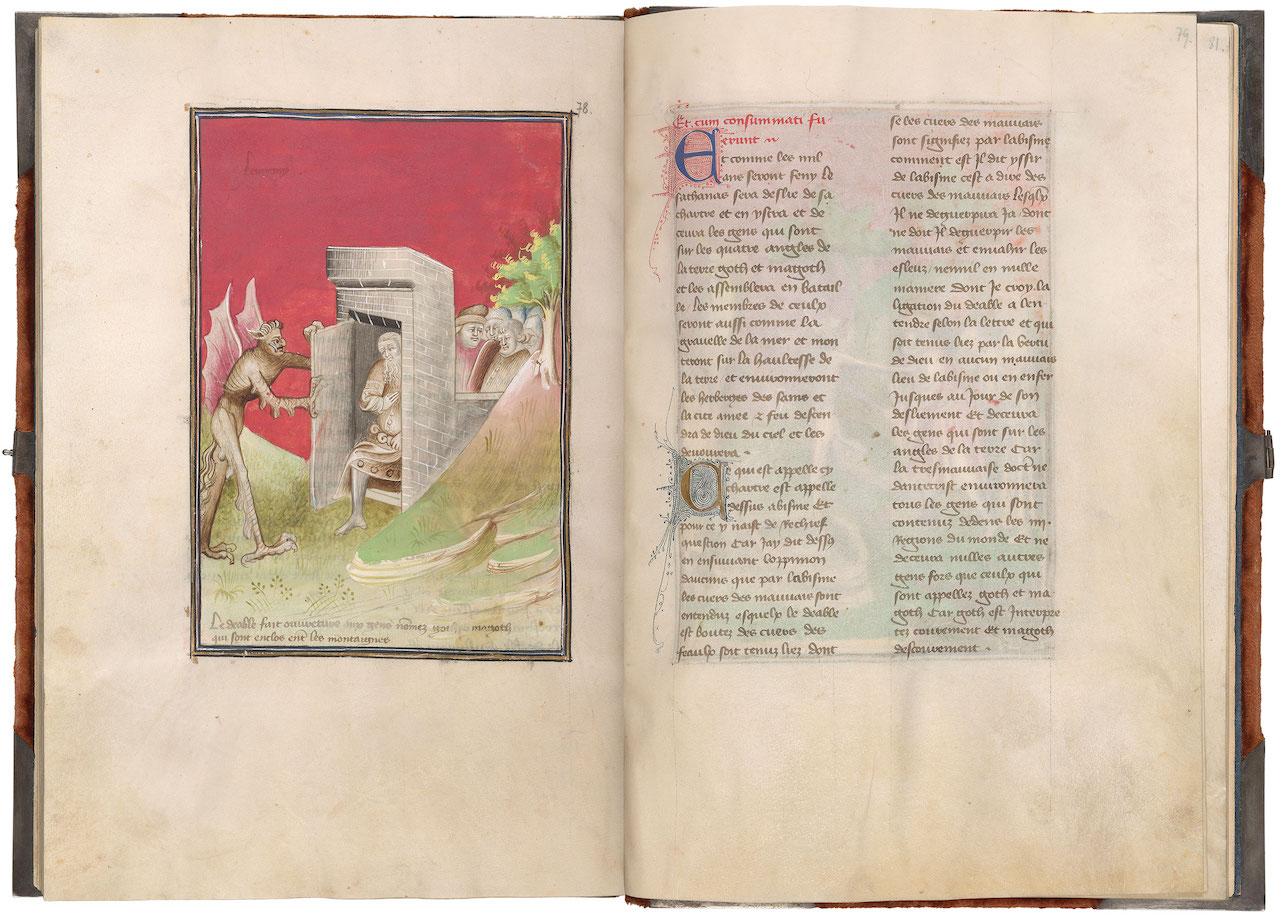 78.
Le deable fait ouverture aux gens nomez goth et magoth
qui sont enclos ent les montaignes
79.
81.
Et cum consummati fu
erunt
Et comme les mil
ans seront feny le
sathanas sera deslie de sa
chartre et en ystra et de
cevra les gens qui sont
sur les quatre angles de
la terre goth et magoth
et les assemblera en batail
le. les membres de ceulx
seront aussi comme la
gravelle de la mer et mon
teront sur la haultesse de
la terre et environneront
les herberges des sains et
la cite amee z feu descen
dra de dieu du ciel et les
devourera.
Ce qui est appelle cy
chartre est appelle
dessus abisme Et
pour ce y naist de rechief
question Car jay dit dessus
en ensuivant loppinion
daucuns que par labisme
les cuers des mauvais sont
entenduz esquelx le deable
est boutez des cuers des
feaulx soit tenuz liez dont
se les cuers des mauvais
sont signifiez par labisme
comment est Il dit yssir
de labisme cest a dire des
cuers des mauvais lesqlx
Il ne deguerpira Ja. dont
ne doit Il deguerpir les
mauvais et envahir les
esleuz, nennil en nulle
maniere dont Je croy la
ligation du deable a len
tendre selon la lettre et qui
soit tenus liez par la vertu
de dieu en aucun mauvais
lieu de labisme ou en enfer
Jusques au Jour de son
desliement Et decevra
les gens qui sont sur les
angles de la terre Car
la tresmauvaise doct'ne
dantecrist environnera
tous les gens qui sont
contenuz dedens les iiii.
Regions du monde Et ne
decevra nulles autres
gens fors que ceulx qui
sont appellez goth et ma
goth Car goth est Interpre
tez couvement Et magoth
descouvement.